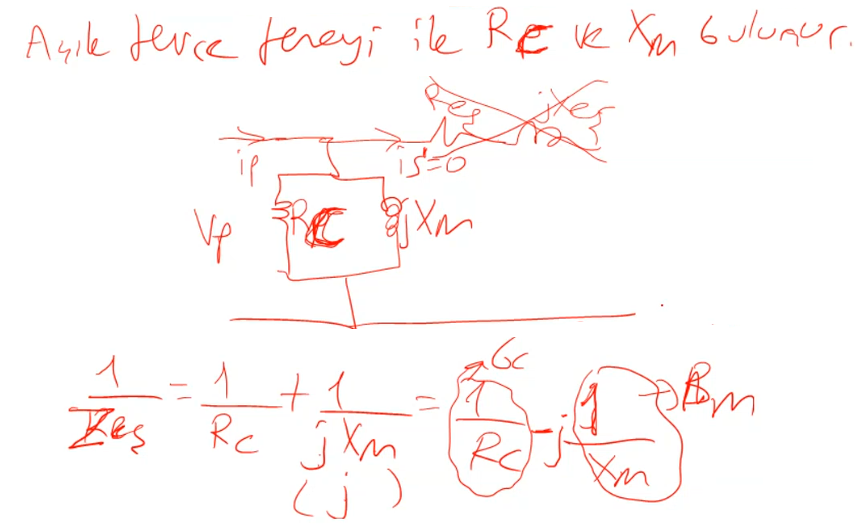 Açık devre deneyi ile Rc ve Xm bulunur.
Reş jXeş
ip is'=0
Vp Rc jXm
Gc
1/Zeş = 1/Rc + 1/jXm = 1/Rc - j 1/Xm → Bm
(j)